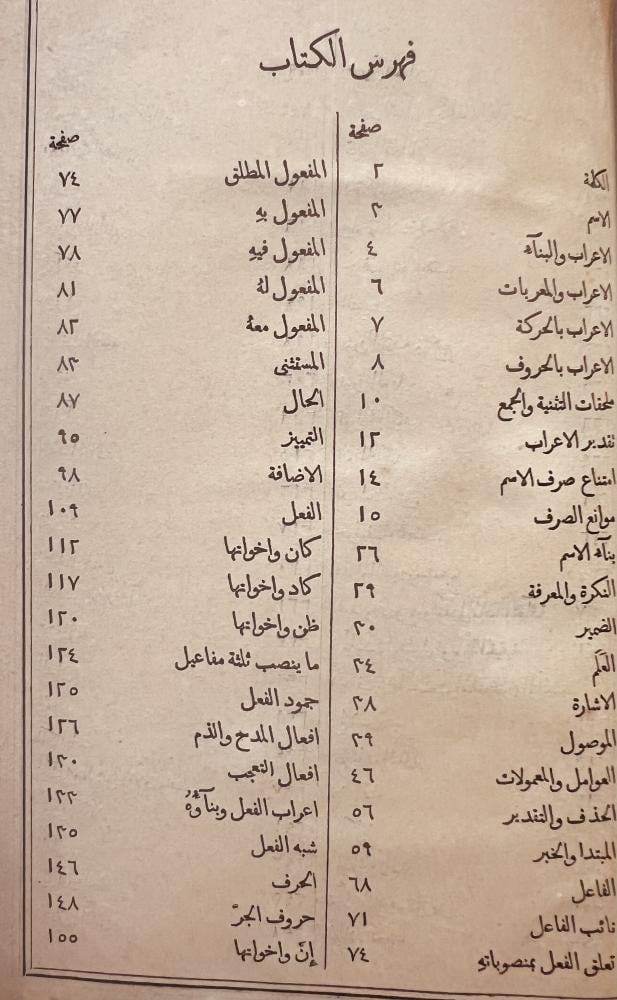 فهرس الكتاب
صفحة
الكلمة ٢
الاسم ٣
الاعراب والبنآء ٤
الاعراب والمعربات ٦
الاعراب بالحركة ٧
الاعراب بالحروف ٨
ملحقات التثنية والجمع ١٠
تقدير الاعراب ١٢
امتناع صرف الاسم ١٤
موانع الصرف ١٥
بنآء الاسم ٢٦
النكرة والمعرفة ٢٩
الضمير ٣٠
العَلَم ٣٤
الاشارة ٣٨
الموصول ٣٩
العوامل والمعمولات ٤٦
الحذف والتقدير ٥٦
المبتدا والخبر ٥٩
الفاعل ٦٨
نائب الفاعل ٧١
تعلق الفعل بمنصوباتهِ ٧٤
صفحة
المفعول المطلق ٧٤
المفعول بهِ ٧٧
المفعول فيهِ ٧٨
المفعول لهُ ٨١
المفعول معهُ ٨٢
المستثنى ٨٣
الحال ٨٧
التمييز ٩٥
الاضافة ٩٨
الفعل ١٠٩
كان واخواتها ١١٢
كاد واخواتها ١١٧
ظن واخواتها ١٢٠
ما ينصب ثلثة مفاعيل ١٢٤
جمود الفعل ١٢٥
افعال المدح والذم ١٢٦
افعال التعجب ١٣٠
اعراب الفعل وبنآؤهُ ١٣٣
شبه الفعل ١٣٥
الحرف ١٤٦
حروف الجرّ ١٤٨
إنّ واخواتها ١٥٥